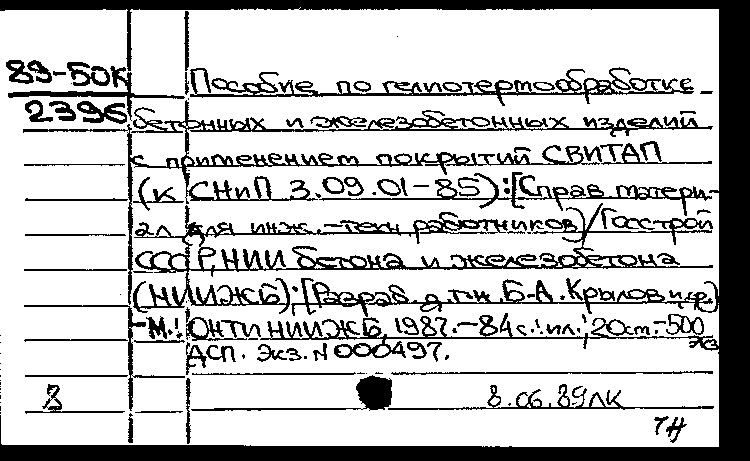 89-БОК Пособие по гелиотермообработке
2396 бетонных и железобетонных изделий
с применением покрытий СВИТАП
(к СНиП 3.09.01-85):[Справ матери-
ал для инж.-техн работников)/Госстрой
СССР, НИИ бетона и железобетона
(НИИЖБ);[Разраб. д.т.н. Б.А.Крылов и др.)
-М.: ОНТИ НИИЖБ, 1987.-84с.:ил.;20см.-500
ДСП. Экз. N 000497. экз
8 8.06.89ЛК